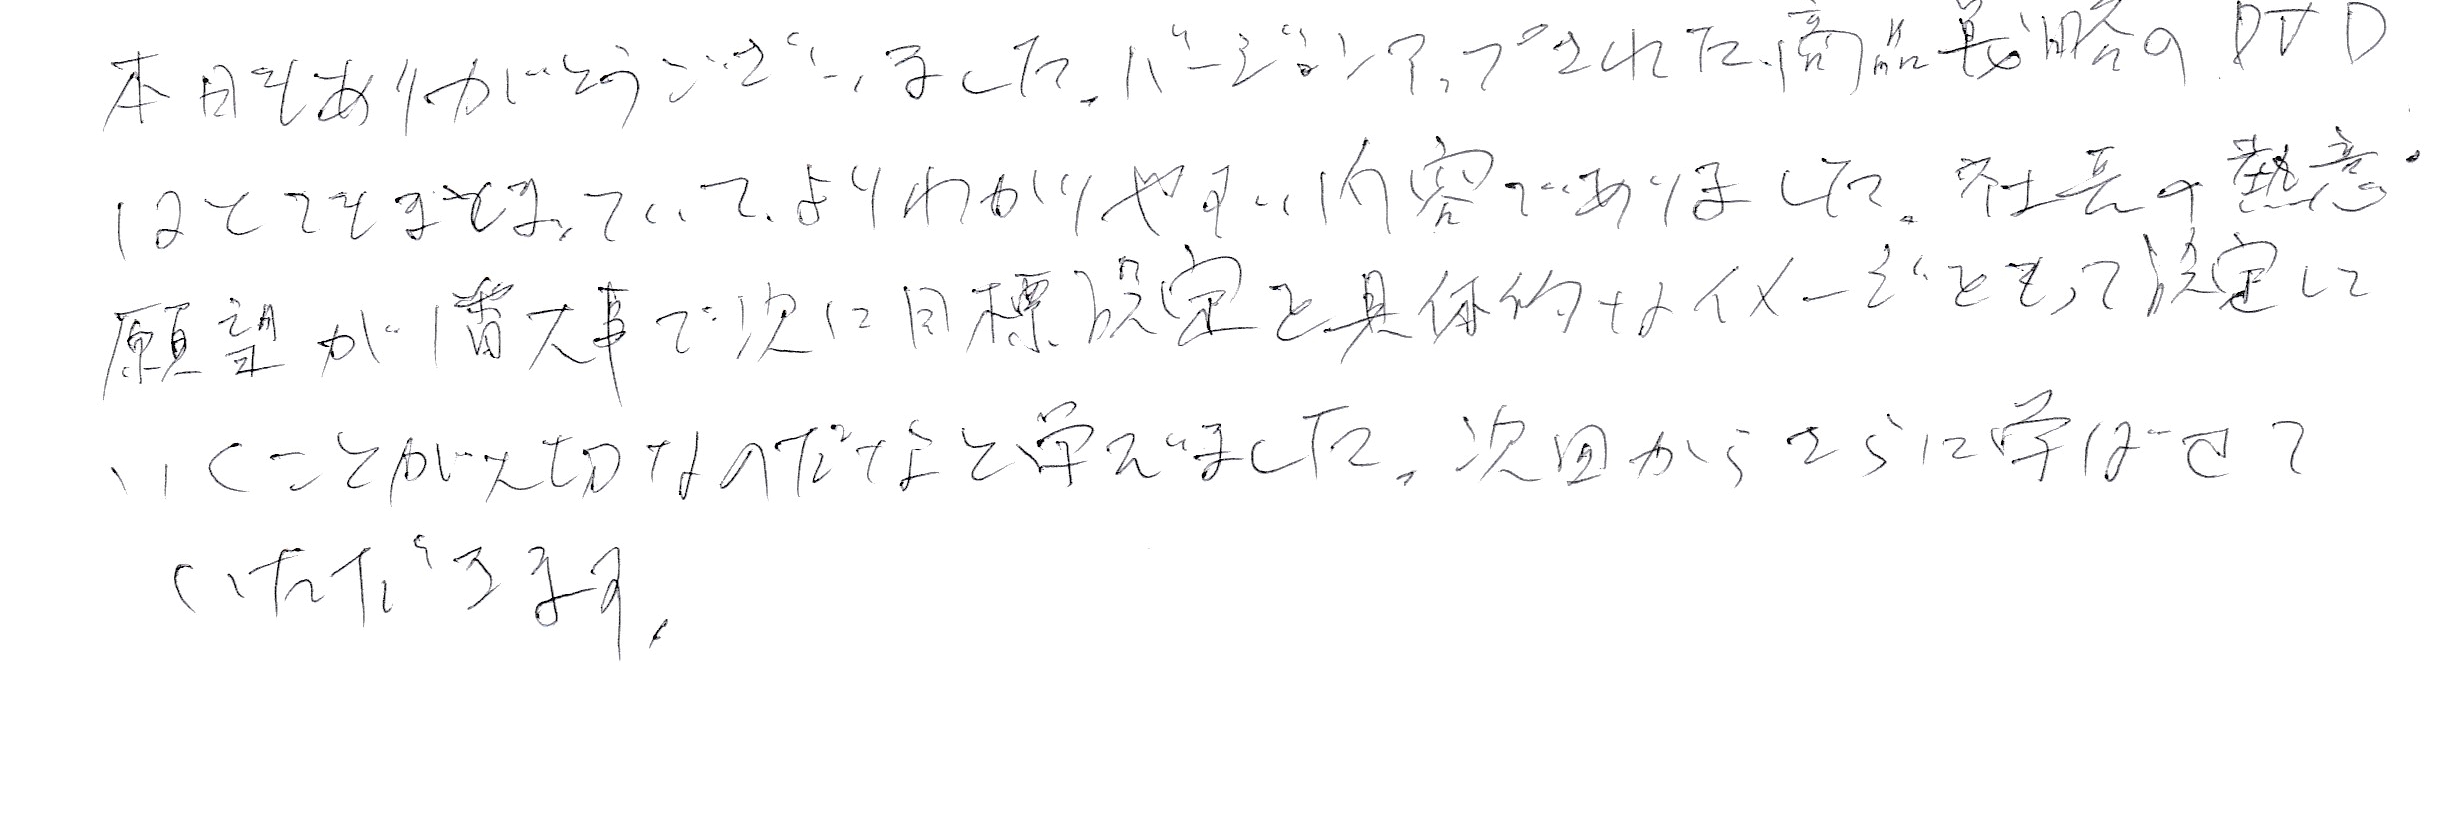 本日もありがとうございました。バージョンアップされた商品戦略のDVD
はとてもまとまっていて、よりわかりやすい内容でありました。社長の熱意・
願望が1番大事で次に目標設定と具体的なイメージをもって設定して
いくことが大切なのだなと学んでました。次回からさらに学ばせて
いただきます。